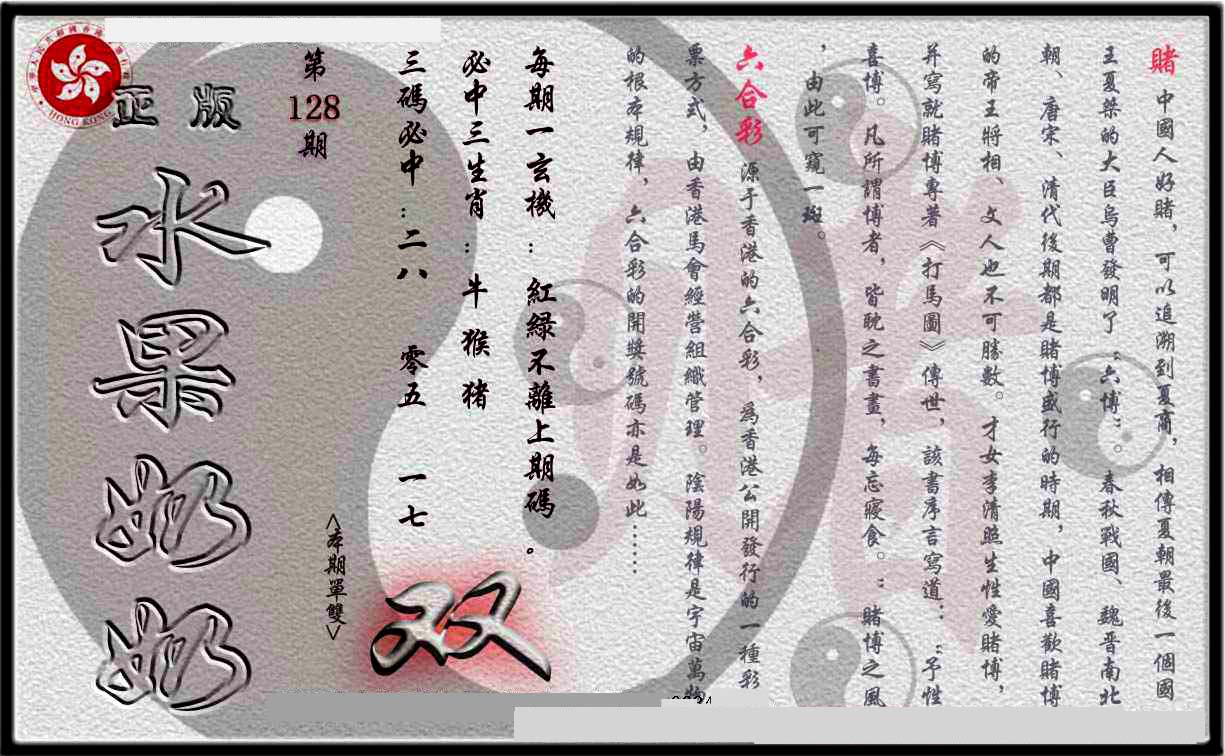 賭 中國人好賭，可以追溯到夏商，相傳夏朝最後一個國
王夏桀的大臣烏曹發明了“六博”。春秋戰國、魏晋南北
朝、唐宋、清代後期都是賭博盛行的時期，中國喜歡賭博
的帝王將相、文人也不可勝數。才女李清照生性愛賭博，
并寫就賭博專著《打馬圖》傳世，該書序言寫道：“予性
喜博。凡所謂博者，皆眈之書畫，每忘寢食。”賭博之風
，由此可窺一斑。
六合彩 源于香港的六合彩，爲香港公開發行的一種彩
票方式，由香港馬會經營組織管理。陰陽規律是宇宙萬物
的根本規律，六合彩的開獎號碼亦是如此……
每期一玄機：紅緑不離上期碼。
必中三生肖：牛 猴 猪
三碼必中：二八 零五 一七
<本期單雙>
双
第
128
期
正版
水果奶奶
HONG KONG